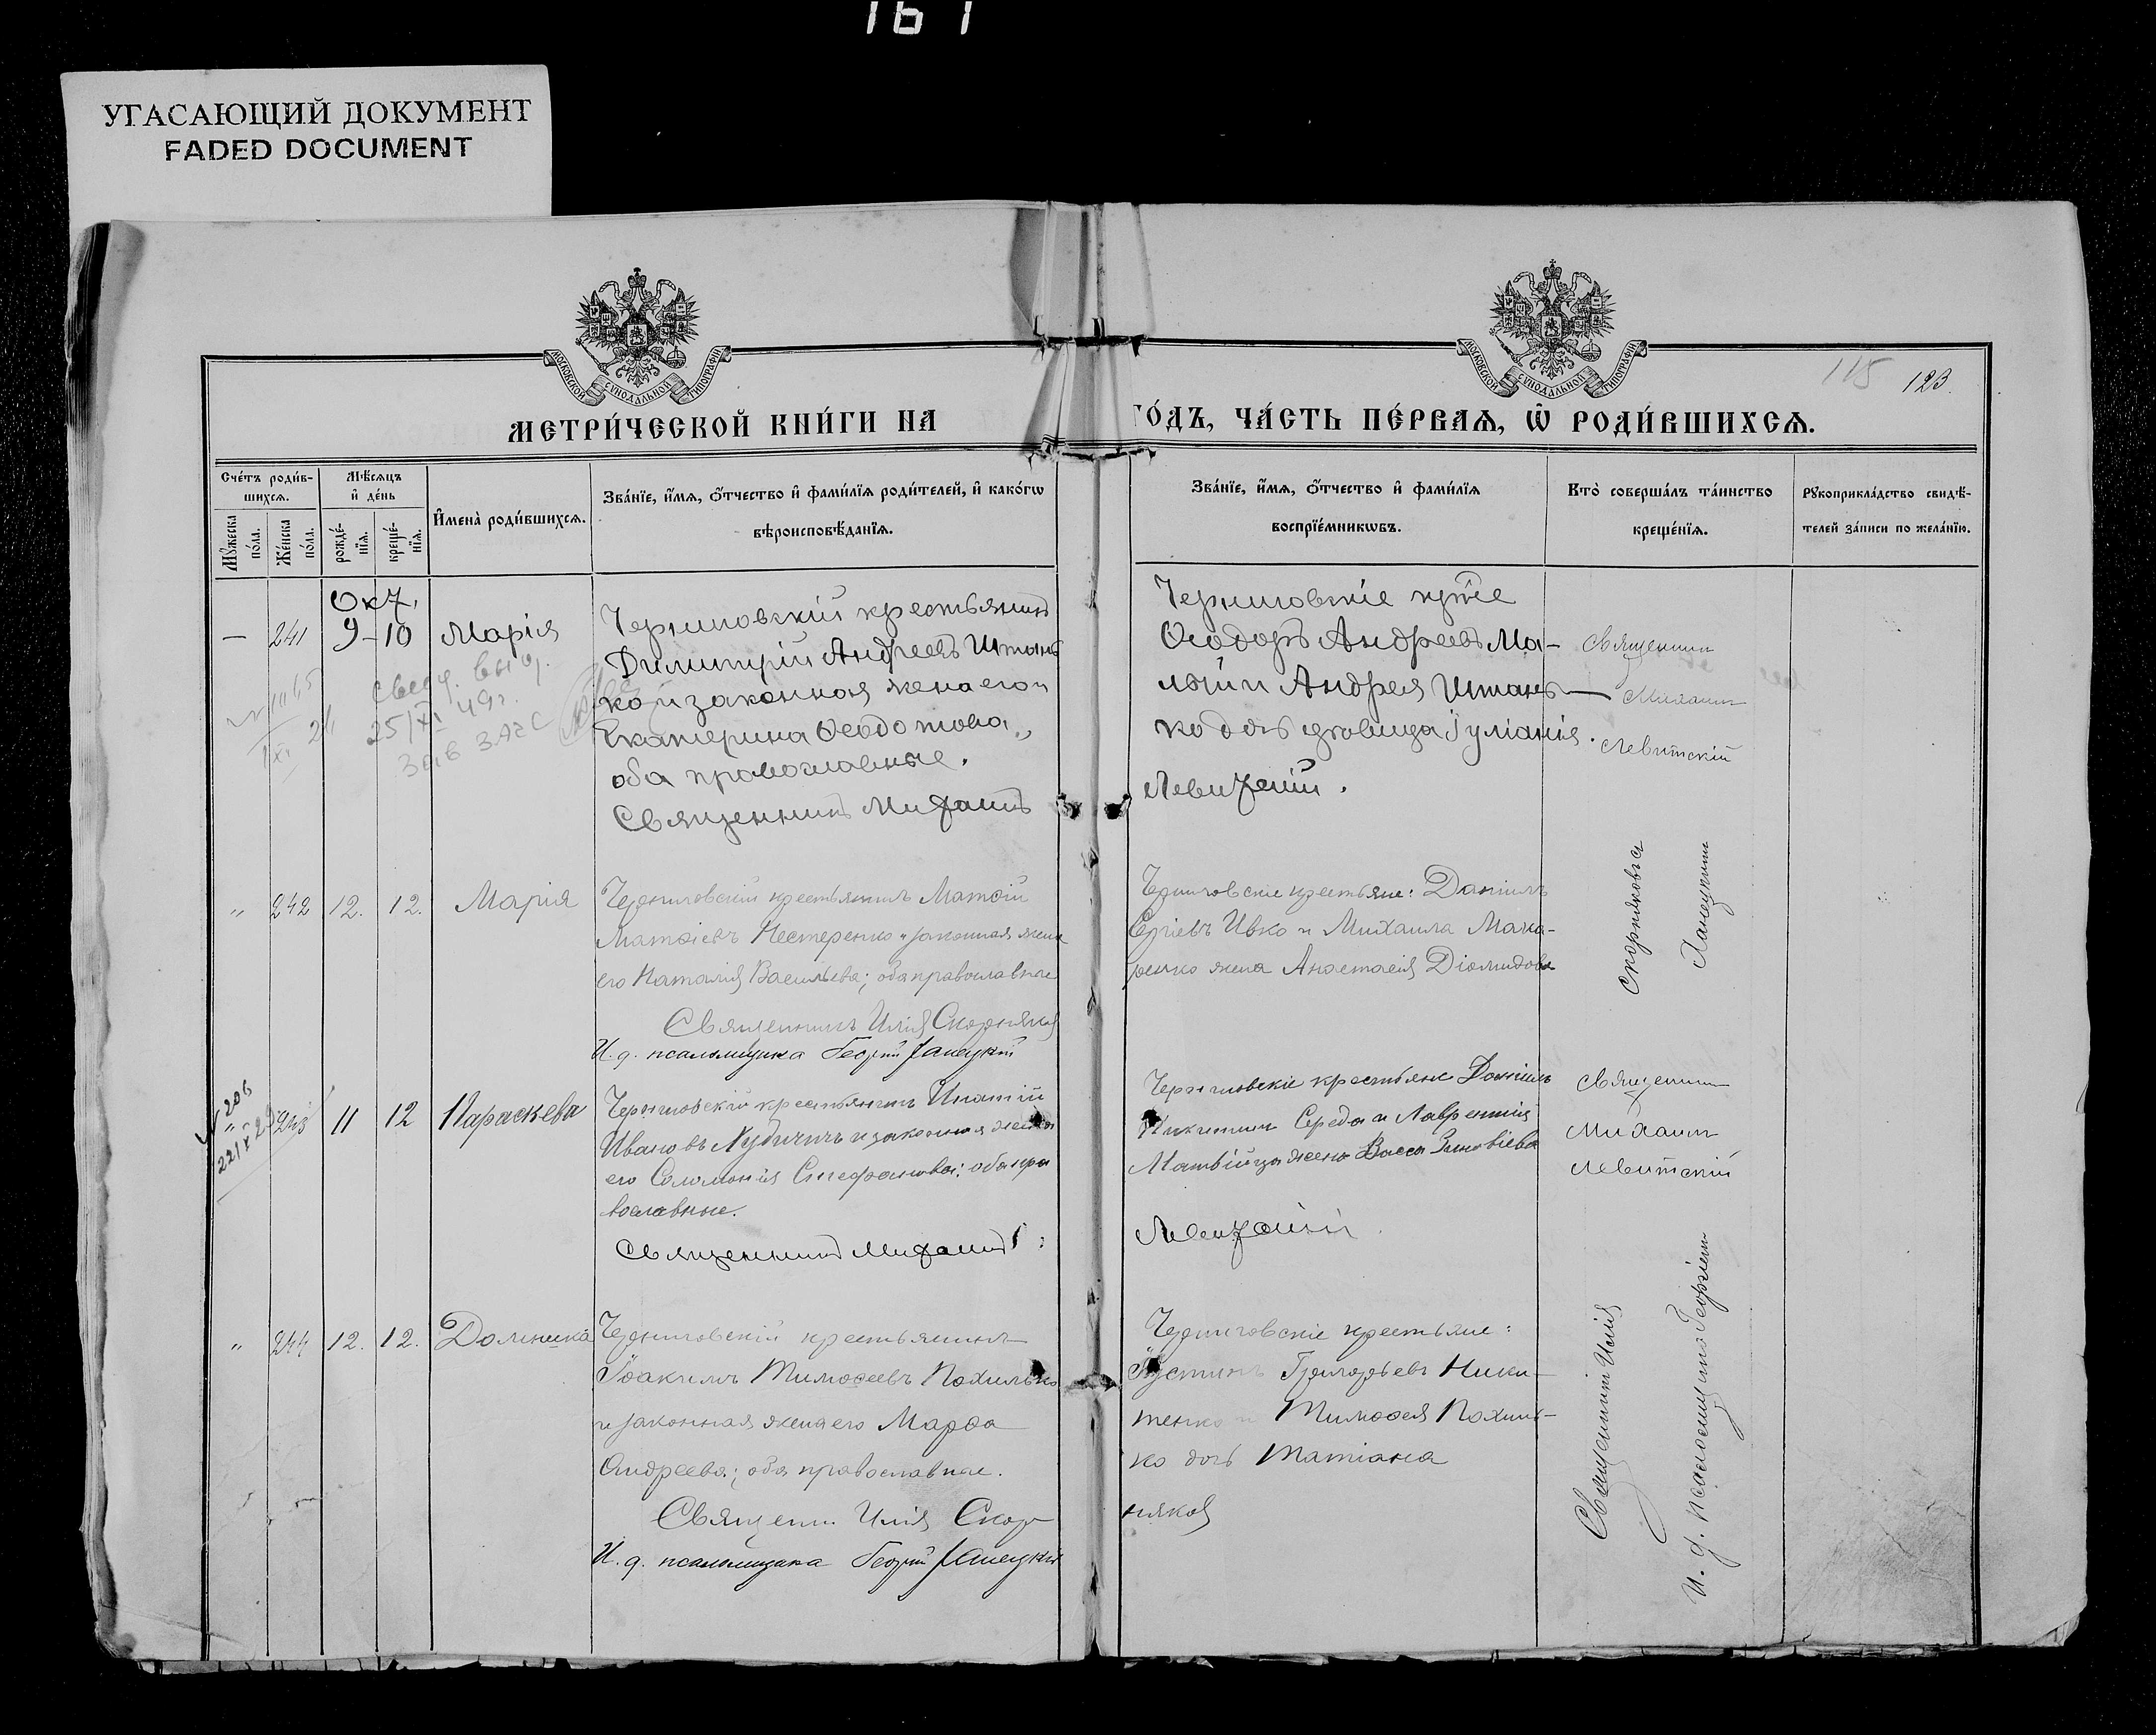 161
УГАСАЮЩИЙ ДОКУМЕНТ
FADED DOCUMENT
МОСКОВСКОЙ СѴНОДАЛЬНОЙ ТИПОГРАФІИ
МОСКОВСКОЙ СѴНОДАЛЬНОЙ ТИПОГРАФІИ
115 123.
МЕТРИ́ЧЕСКОЙ КНИ́ГИ НА
ГО́ДЪ, ЧА́СТЬ ПЕ́РВАѦ, Ѡ҆ РОДИ́ВШИХСѦ.
Сче́тъ роди́в-
шихсѧ.
Мѣ́сѧцъ
и҆ де́нь
Мꙋ́жеска
по́ла.
Же́нска
по́ла.
рожде́-
нїѧ.
креще́-
нїѧ.
И҆мена̀ роди́вшихсѧ.
Зва́нїе, и҆́мѧ, ѻ҆́тчество и҆ фами́лїѧ роди́телей, и҆ како́гѡ
вѣроисповѣ́данїѧ.
Зва́нїе, и҆́мѧ, ѻ҆́тчество и҆ фами́лїѧ
воспрїе́мникѡвъ.
Кто̀ соверша́лъ та́инство
креще́нїѧ.
Рꙋкоприкла́дство свидѣ́-
телей за́писи по жела́нїю.
Окт.
— 241 9-10 Марія
Черниговскій крестьянинъ
Димитрій Андреевъ Штань
ко и законная жена его
Екатерина Ѳеодотова,
оба православные.
Священникъ Михаилъ
Черниговскіе
Ѳеодоръ Андреевъ Ма-
и Андрея Штань-
ко дочь девица Іуліанія.
Левитскій.
Священникъ
Михаилъ
Левитскій
свид. выд.
25/XI 49г.
ЗАГС
„ 242 12. 12. Марія
Черниговскій крестьянинъ Матѳій
Матѳіевъ Нестеренко и законная жена
его Наталія Васильева; оба православные
Священникъ Илія Скорняковъ
И. д. псаломщика Георгій Ланецкій
Черниговскіе крестьяне: Даніилъ
Сергіевъ Ивко и Михаила Мака-
ренко жена Анастасія Діомидова
Скорняковъ
Ланецкимъ
206
22/X 29
„ 243 11 12 Параскева
Черниговскій крестьянинъ Игнатій
Ивановъ Кудичъ и законная жена
его Соломонія Стефанова; оба пра
вославные.
Священникъ Михаилъ
Черниговскіе крестьяне Даніилъ
Никитинъ Середа и Лаврентія
Матвійца жена Васса Зиновіева
Левитскій
Священникъ
Михаилъ
Левитскій
„ 244 12. 12. Домникія
Черниговскій крестьянинъ
Іоакимъ Тимоѳеевъ Похилько
и законная жена его Марѳа
Андреева; оба православные.
Священ. Илія Скор-
И. д. псаломщика Георгій Ланецкій
Черниговскіе крестьяне:
Іустинъ Григорьевъ Ники-
тенко и Тимоѳея Похиль-
ко дочь Татіана
няковъ
Священникъ Илія
И. д. псаломщика Георгіемъ